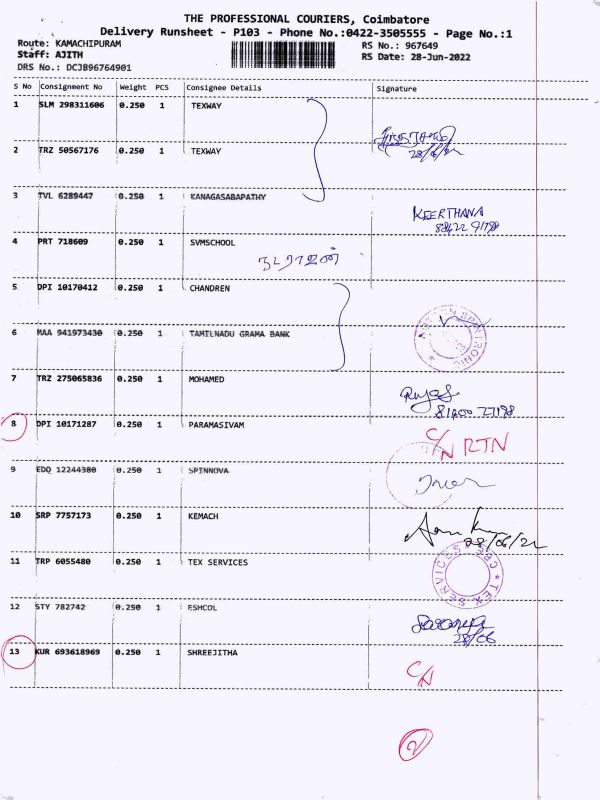 THE PROFESSIONAL COURIERS, Coimbatore
Delivery Runsheet - P103 - Phone No.:0422-3505555 - Page No.:1
Route: KAMACHIPURAM
RS No.: 967649
Staff: AJITH
RS Date: 28-Jun-2022
DRS No.: DCJB96764901
S No Consignment No Weight PCS Consignee Details Signature
1 SLM 298311606 0.250 1 TEXWAY
28/6/22
2 TRZ 50567176 0.250 1 TEXWAY
3 TVL 6289447 0.250 1 KANAGASABAPATHY
KEERTHANA
4 PRT 718609 0.250 1 SVMSCHOOL
நடராஜன்
5 DPI 10170412 0.250 1 CHANDREN
6 MAA 941973430 0.250 1 TAMILNADU GRAMA BANK
7 TRZ 275065836 0.250 1 MOHAMED
8 DPI 10171287 0.250 1 PARAMASIVAM
C/N RTN
9 EDQ 12244380 0.250 1 SPINNOVA
10 SRP 7757173 0.250 1 KEMACH
28/06/22
11 TRP 6055480 0.250 1 TEX SERVICES
TEX SERVICES
12 STY 782742 0.250 1 ESHCOL
28/06
13 KUR 693618969 0.250 1 SHREEJITHA
C/N
2